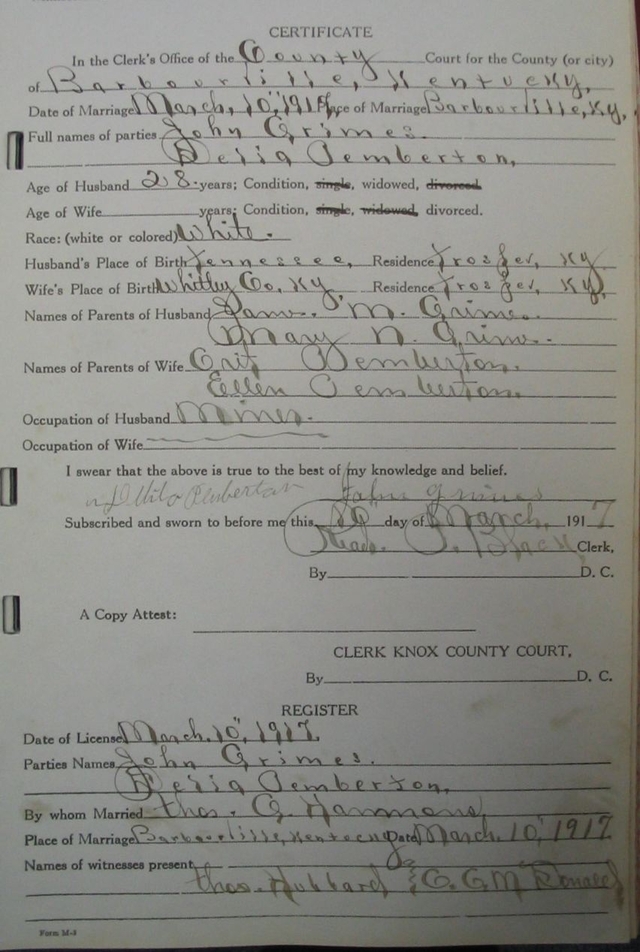 CERTIFICATE
In the Clerk's Office of the County Court for the County (or city)
of Barbourville, Kentucky,
Date of Marriage March, 10", 1917, Place of Marriage Barbourville, Ky,
Full names of parties John Grimes.
Pemberton,
Age of Husband 28. years; Condition, single, widowed, divorced.
Age of Wife years; Condition, single, widowed, divorced.
Race: (white or colored) White.
Husband's Place of Birth Tennessee, Residence Trosper, Ky
Wife's Place of Birth Whitley Co, Ky Residence Trosper, Ky,
Names of Parents of Husband M. Grimes.
Mary N. Grimes.
Names of Parents of Wife Pemberton.
Ellen Pemberton.
Occupation of Husband Miner.
Occupation of Wife
I swear that the above is true to the best of my knowledge and belief.
John Grimes
Subscribed and sworn to before me this 10" day of March, 1917
Read P. Black Clerk,
By D. C.
A Copy Attest:
CLERK KNOX COUNTY COURT,
By D. C.
REGISTER
Date of License March, 10", 1917,
Parties Names John Grimes.
Pemberton,
By whom Married Thos. G. Hammons,
Place of Marriage Barbourville, Kentucky Date March. 10", 1917
Names of witnesses present,
Thos. Hubbard & C. G. McDonald
Form M-4